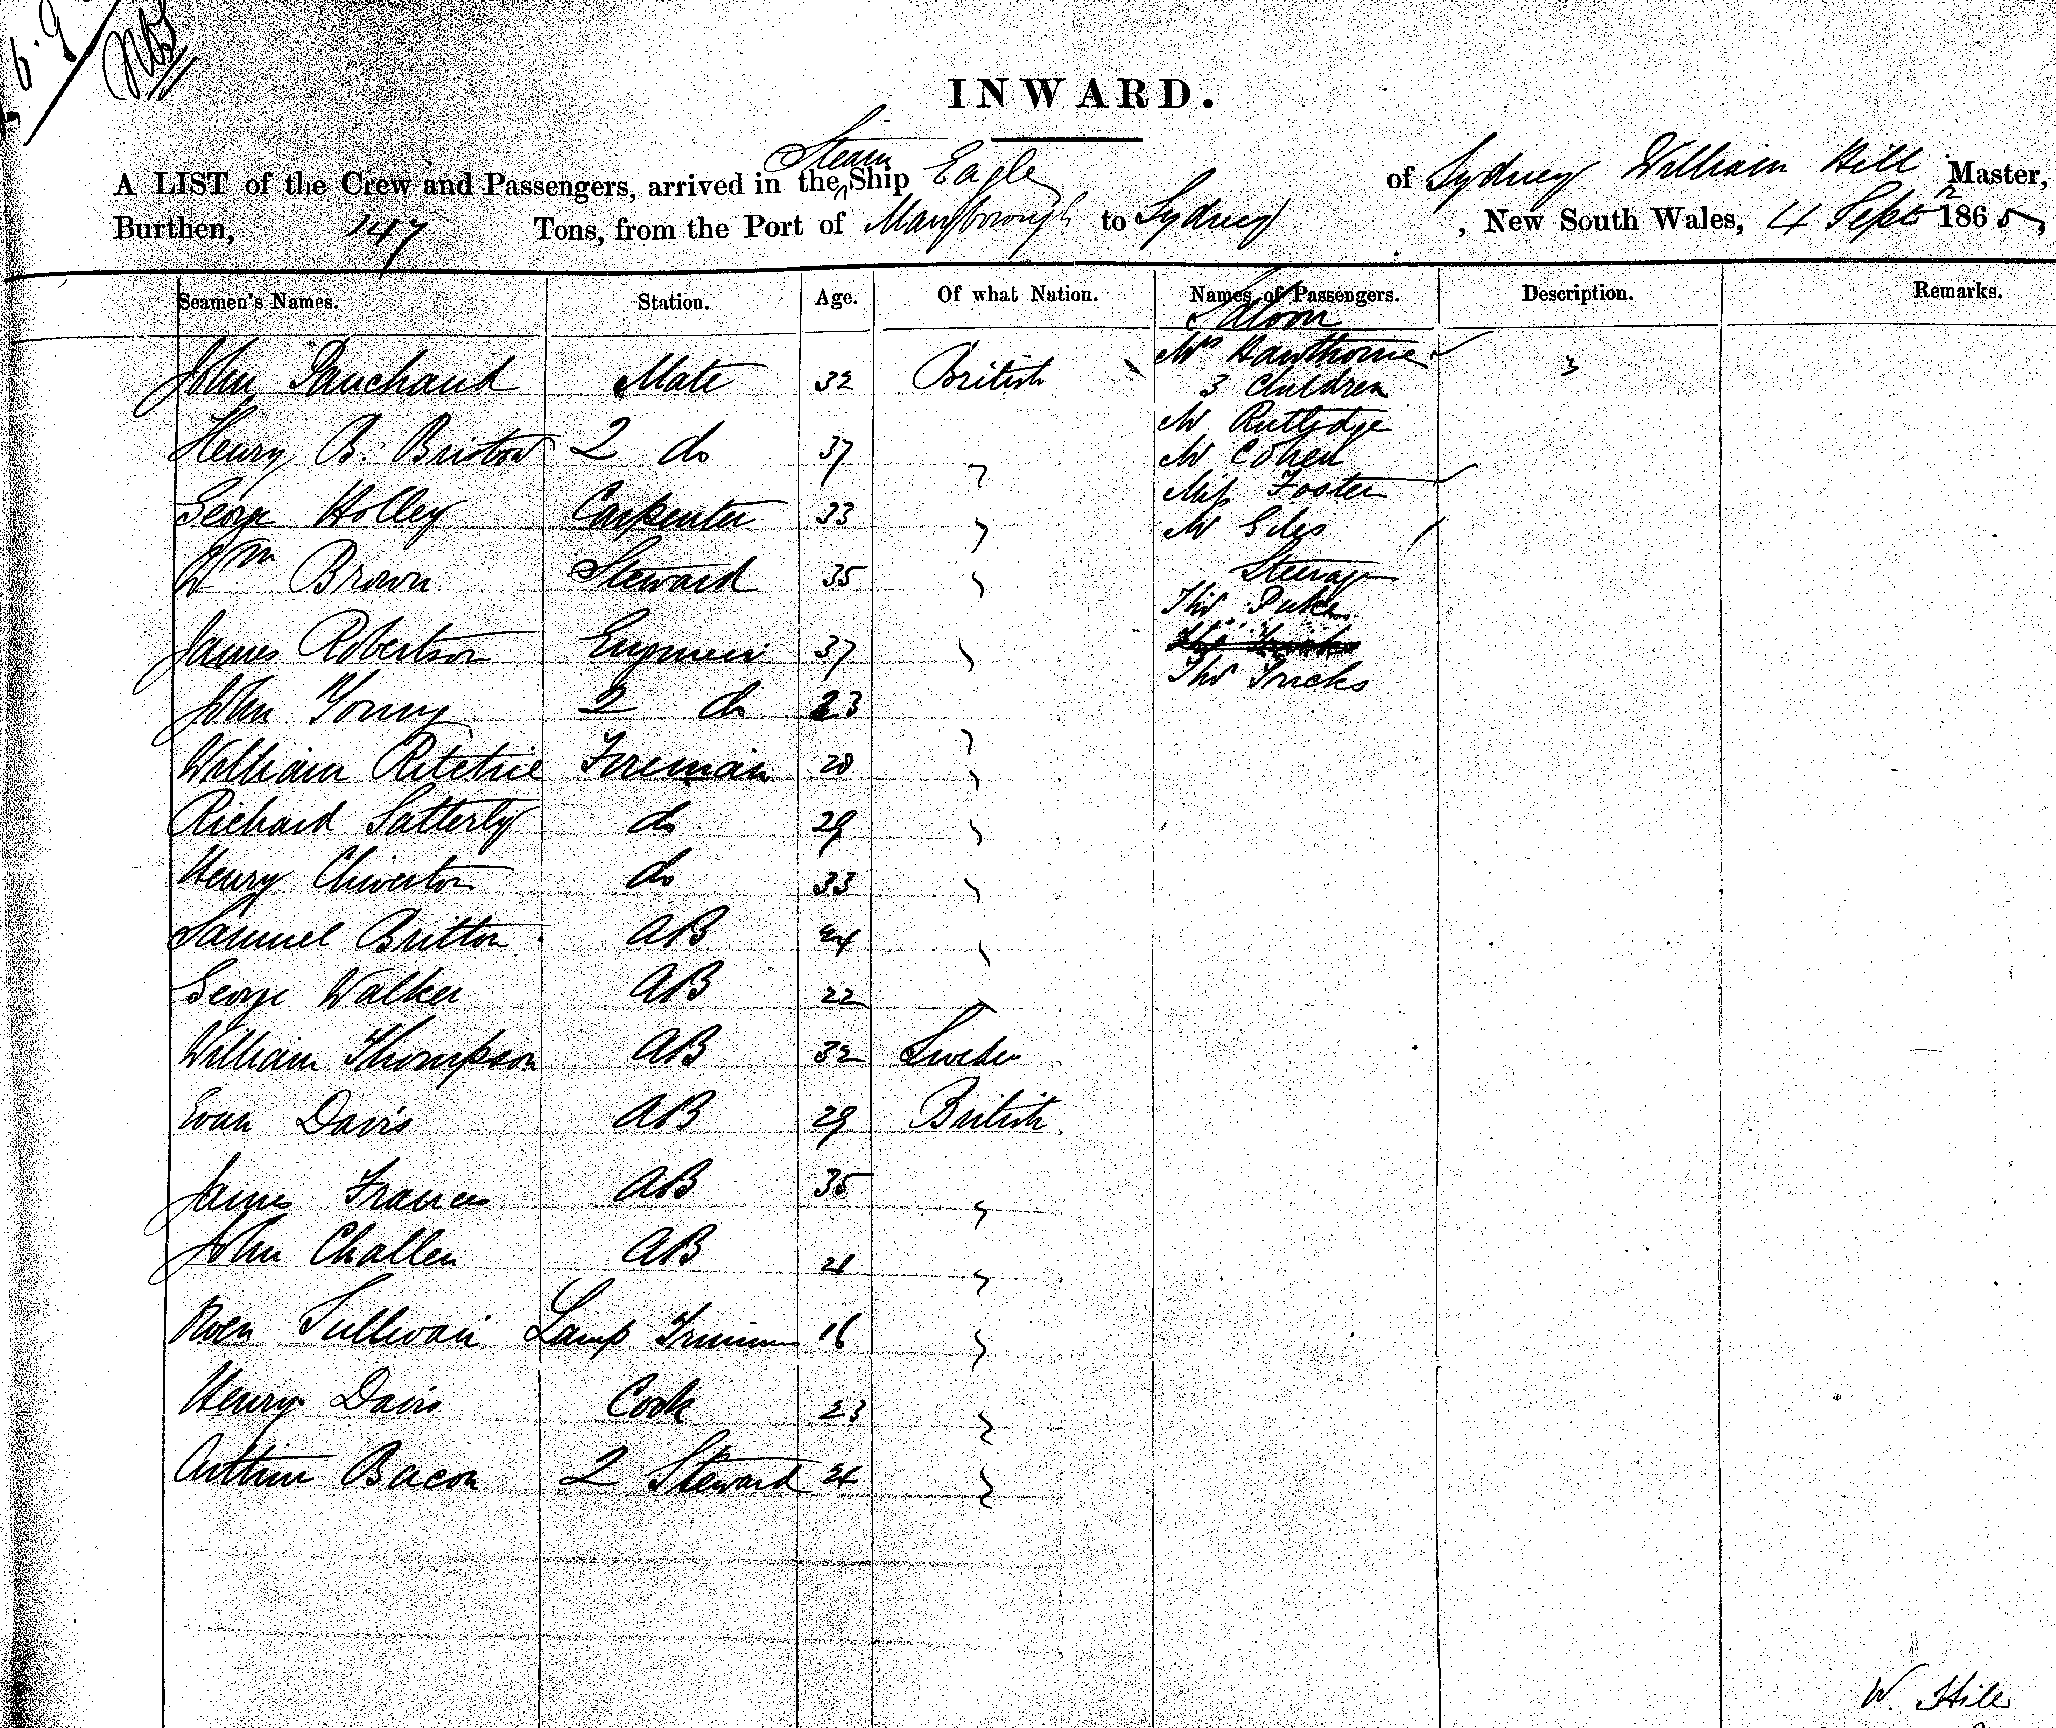 6.9
INWARD.
Steam
A LIST of the Crew and Passengers, arrived in the Ship Eagle of Sydney William Hill Master,
Burthen, 147 Tons, from the Port of Maryborough to Sydney, New South Wales, 4 Sept 1865,
Seamen's Names. Station. Age. Of what Nation. Names of Passengers. Description. Remarks.
Saloon
Mrs Hawthorne
John Panchaud Mate 32 British 3 Children
Mr Rutledge
Henry B. Bristow 2 do 37 " Mr Cohen
Miss Foster
George Holley Carpenter 33 " Mr Giles
Steerage
Wm Brown Steward 35 "
Thos Duke
James Robertson Engineer 37 "
Thos Tricks
John Young 2 do 23 "
William Ritchie Fireman 28 "
Richard Satterly do 29 "
Henry Chiverton do 33 "
Samuel Britton AB 24 "
George Walker AB 22 "
William Thompson AB 32 Sweden
Evan Davis AB 29 British
James Frances AB 35 "
John Challen AB "
Owen Sullivan Lamp Trimmer 16 "
Henry Davis Cook 23 "
Arthur Bacon 2 Steward 24 "
W. Hill